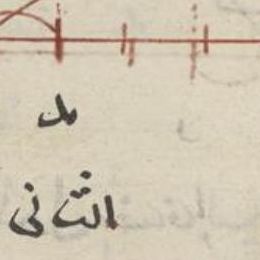 مد
الثانى